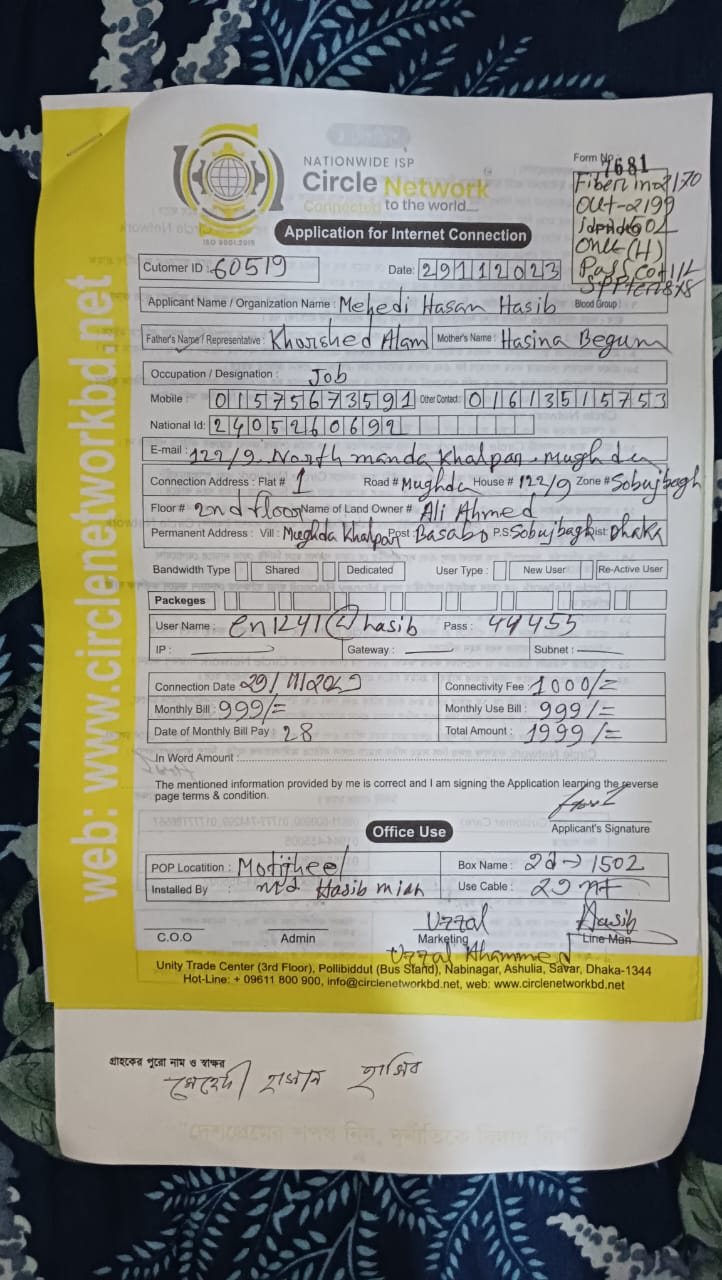 NATIONWIDE ISP
Circle Network
Connected to the world....
ISO 9001:2015
Form No 7681
Fiber in 2170
Out-2199
Onu (H)
Application for Internet Connection
web: www.circlenetworkbd.net
Cutomer ID : 60519 Date: 29112023
Applicant Name / Organization Name : Mehedi Hasan Hasib Blood Group :
Father's Name / Representative : Khorshed Alam Mother's Name : Hasina Begum
Occupation / Designation : Job
Mobile : 01575673591 Other Contact : 01613515753
National Id: 2405260699
E-mail : 122/9. North manda Khalpar. Mughda
Connection Address : Flat # 1 Road # Mughda House # 122/9 Zone # Sobujbagh
Floor # 2nd floor Name of Land Owner # Ali Ahmed
Permanent Address : Vill : Mughda Khalpar Post Basabo P.S Sobujbagh Dist: Dhaka
Bandwidth Type Shared Dedicated User Type : New User Re-Active User
Packeges
User Name : hasib Pass : 44455
IP : Gateway : Subnet :
Connection Date 29/11/2023 Connectivity Fee : 1000/=
Monthly Bill : 999/= Monthly Use Bill : 999/=
Date of Monthly Bill Pay : 28 Total Amount : 1999/=
In Word Amount :
The mentioned information provided by me is correct and I am signing the Application learning the reverse
page terms & condition.
Applicant's Signature
Office Use
POP Locatition : Motijheel Box Name : 2d→1502
Installed By : md Hasib miah Use Cable :
Uzzal Hasib
C.O.O Admin Marketing Line Man
Uzzal Ahammed
Unity Trade Center (3rd Floor), Pollibiddut (Bus Stand), Nabinagar, Ashulia, Savar, Dhaka-1344
Hot-Line: + 09611 800 900, info@circlenetworkbd.net, web: www.circlenetworkbd.net
গ্রাহকের পুরো নাম ও স্বাক্ষর
মেহেদী হাসান হাসিব